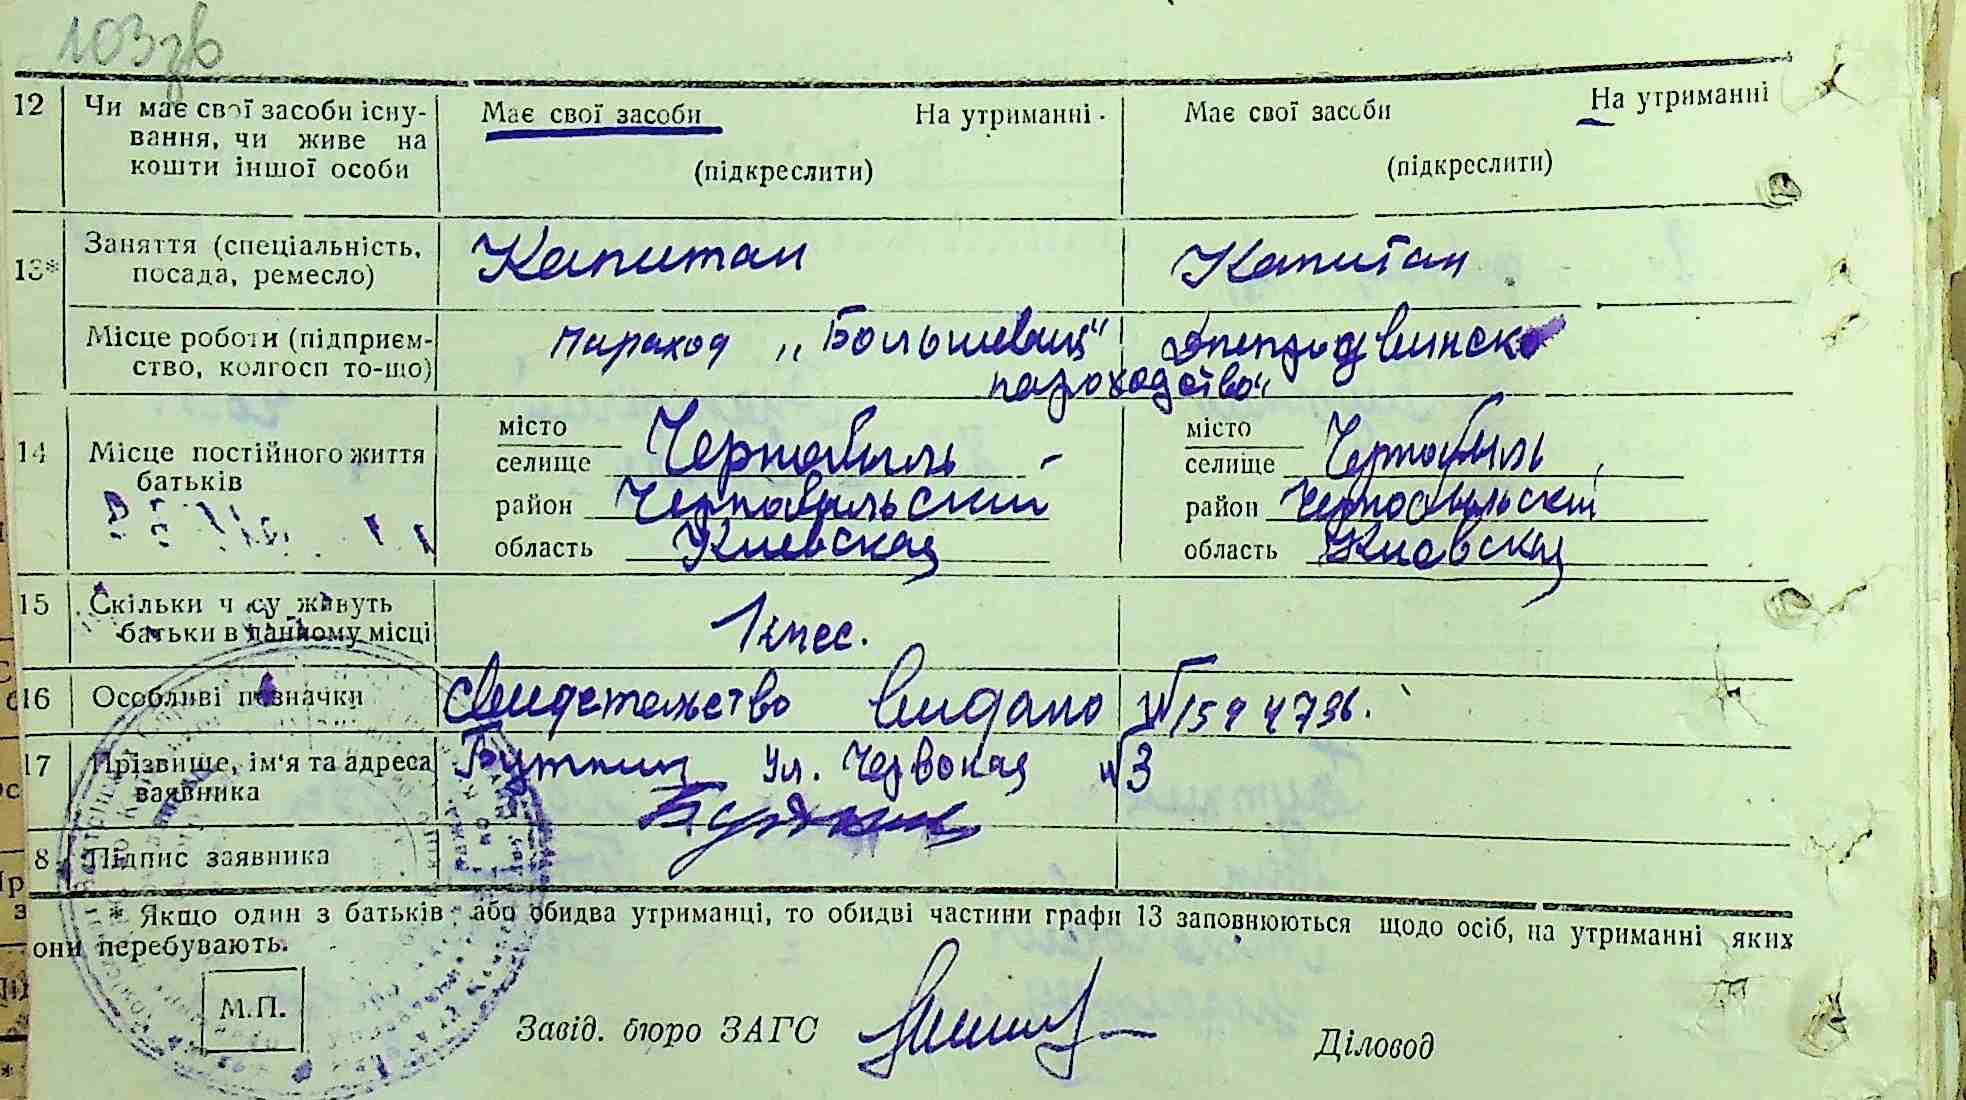 103зв
12 Чи має свої засоби існу- Має свої засоби На утриманні Має свої засоби На утриманні
вання, чи живе на
кошти іншої особи (підкреслити) (підкреслити)
13* Заняття (спеціальність, Капитан Капитан
посада, ремесло)
Місце роботи (підприєм- пароход „Большевик" Днепродвинско
ство, колгосп то-що) пароходство"
14 Місце постійного життя місто місто
батьків селище Чернобыль селище Чернобыль
район Чернобыльский район Чернобыльский
область Киевская область Киевская
15 Скільки ч су живуть 1 мес.
батьки в данному місці
16 Особливі позначки Свидетельство видано №
17 Прізвище, ім'я та адреса ул. Червоная №3
заявника
8 Підпис заявника
* Якщо один з батьків або обидва утриманці, то обидві частини графи 13 заповнюються щодо осіб, на утриманні яких
они перебувають.
М.П.
Завід. бюро ЗАГС Діловод